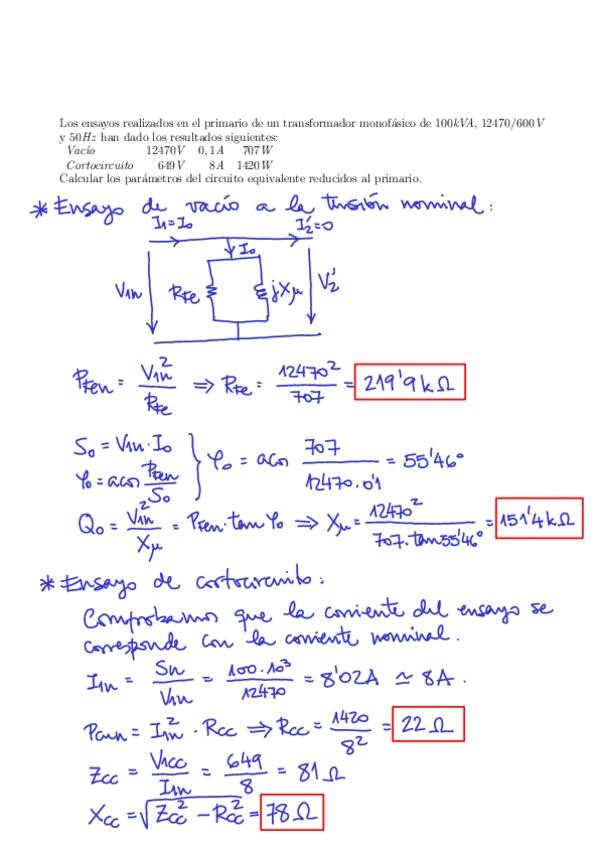 Los ensayos realizados en el primario de un transformador monofásico de 100kVA, 12470/600 V
y 50Hz han dado los resultados siguientes:
Vacío 12470 V 0,1 A 707 W
Cortocircuito 649 V 8 A 1420 W
Calcular los parámetros del circuito equivalente reducidos al primario.
* Ensayo de vacío a la tensión nominal:
I₁=I₀ I₂'=0
I₀
V₁n R_Fe jXμ V₂'
P_Fen = V₁n² / R_Fe ⇒ R_Fe = 12470² / 707 = 219'9 kΩ
S₀ = V₁n · I₀
φ₀ = acos P_Fen / S₀ } φ₀ = acos 707 / 12470·0'1 = 55'46°
Q₀ = V₁n² / Xμ = P_Fen · tan φ₀ ⇒ Xμ = 12470² / 707·tan 55'46° = 151'4 kΩ
* Ensayo de cortocircuito:
Comprobamos que la corriente del ensayo se
corresponde con la corriente nominal.
I₁n = Sn / V₁n = 100·10³ / 12470 = 8'02A ≃ 8A.
Pcun = I₁n² · Rcc ⇒ Rcc = 1420 / 8² = 22 Ω
Zcc = V₁cc / I₁n = 649 / 8 = 81 Ω
Xcc = √(Zcc² − Rcc²) = 78 Ω